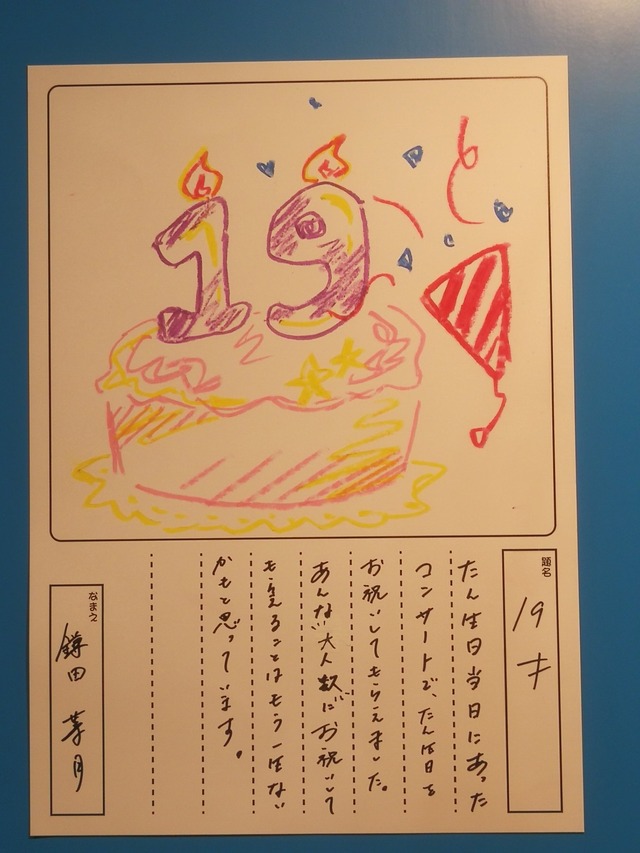 19
題名
19才
たん生日当日にあった
コンサートで、たん生日を
お祝いしてもらえました。
あんな大人数にお祝いして
もらえることはもう一生ない
かもと思っています。
なまえ
鐏田 芽月